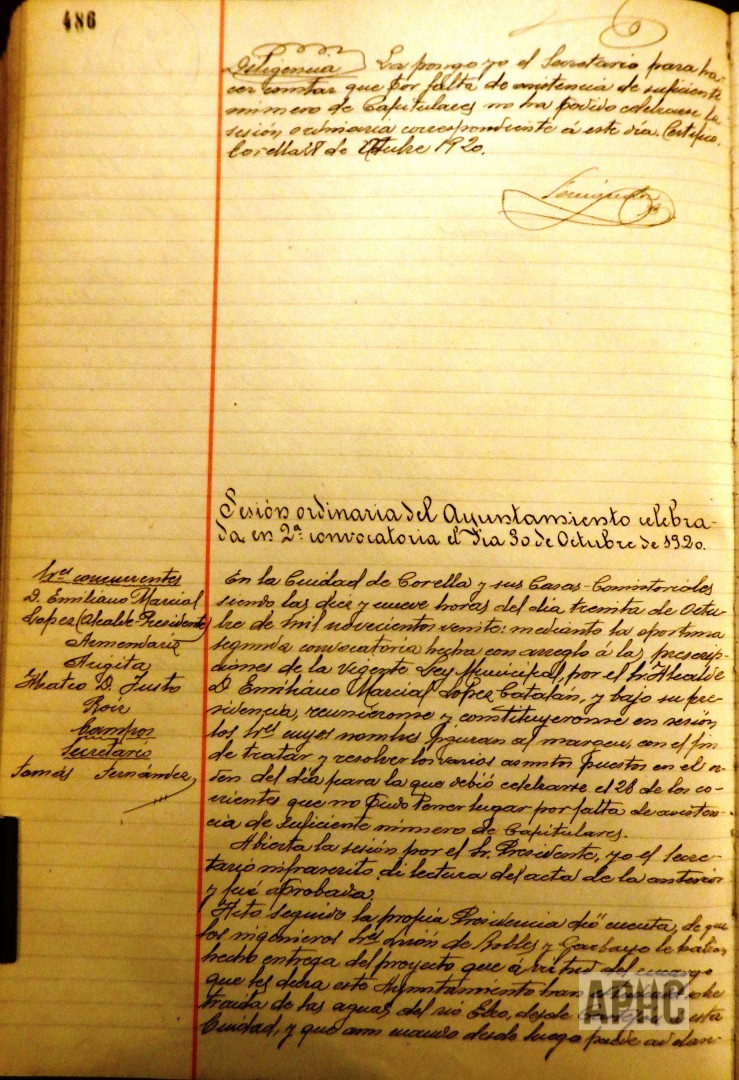 486
Diligencia La pongo yo el Secretario para ha-
cer constar que por falta de asistencia de suficiente
número de Capitulares no ha podido celebrarse la
sesión ordinaria correspondiente á este día. Certifico.
Corella 28 de Octubre 1920.
Sesión ordinaria del Ayuntamiento celebra-
da en 2ª convocatoria el dia 30 de Octubre de 1920.
Sres concurrentes
D. Emiliano Marcial
Lopez (Alcalde Presidente)
Armendariz
Augita
Mateo D. Justo
Roiz
Campos
Secretario
Tomás Fernández
En la Ciudad de Corella y sus Casas-Consistoriales
siendo las diez y nueve horas del día treinta de Octu-
bre de mil novecientos veinte: mediante la oportuna
segunda convocatoria hecha con arreglo á las prescrip-
ciones de la vigente Ley Municipal, por el Sr. Alcalde
D Emiliano Marcial López Catalán, y bajo su pre-
sidencia, reuniéronse y constituyeronse en sesión
los Sres cuyos nombres figuran al margen, con el fin
de tratar y resolver los varios asuntos puestos en el or-
den del día para la que debió celebrarse el 28 de los co-
rrientes que no pudo tener lugar por falta de asisten-
cia de suficiente número de Capitulares.
Abierta la sesión por el Sr. Presidente, yo el Secre-
tario infrascrito di lectura del acta de la anterior
y fué aprobada.
Acto seguido la propia Presidencia dió cuenta, de que
los ingenieros Sres de Robles y Garbayo le habían
hecho entrega del proyecto que á virtud del encargo
que les diera este Ayuntamiento han sobre
traida de las aguas del rio Ebro, desde á esta
Ciudad, y que aun cuando desde luego puede adelan-
APHC